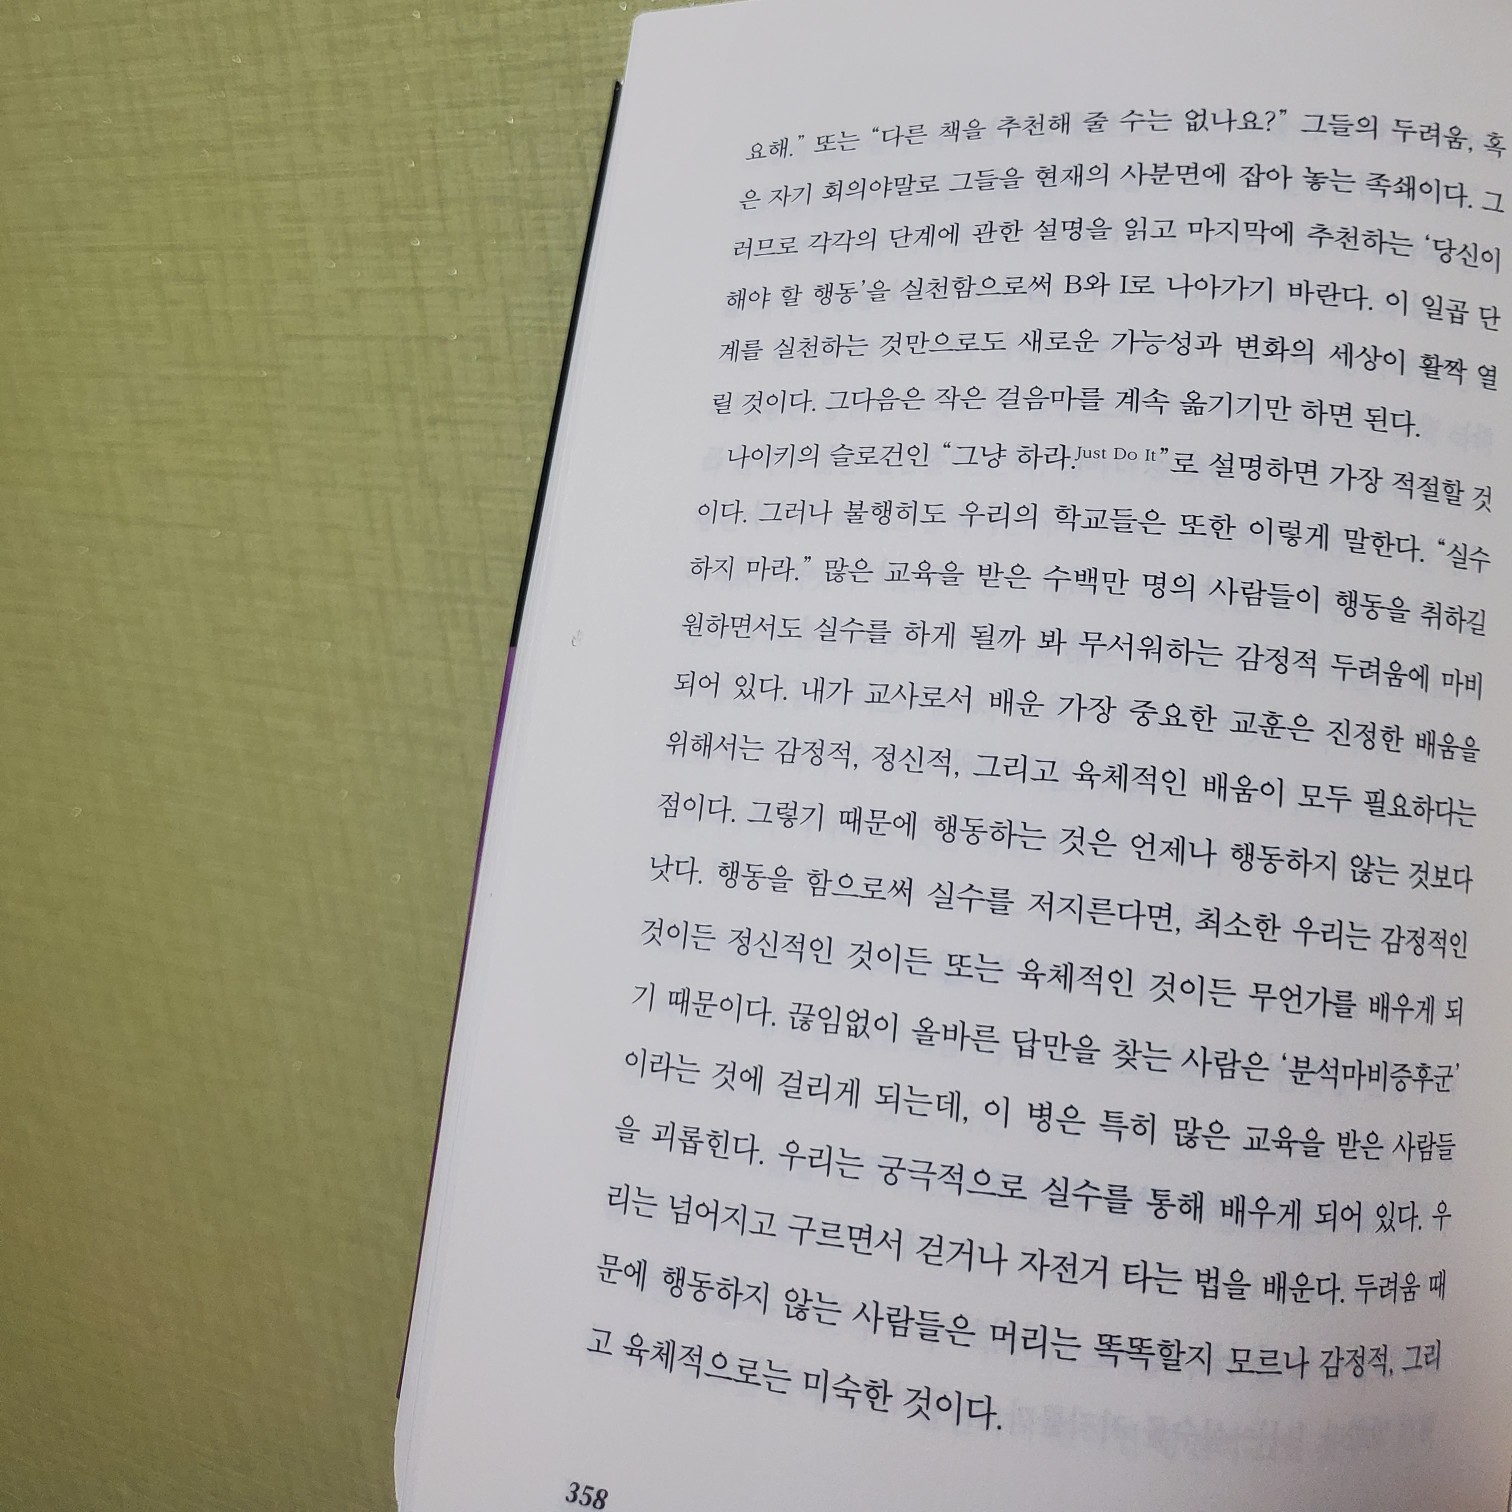 요해.” 또는 “다른 책을 추천해 줄 수는 없나요?” 그들의 두려움, 혹
은 자기 회의야말로 그들을 현재의 사분면에 잡아 놓는 족쇄이다. 그
러므로 각각의 단계에 관한 설명을 읽고 마지막에 추천하는 ‘당신이
해야 할 행동’을 실천함으로써 B와 I로 나아가기 바란다. 이 일곱 단
계를 실천하는 것만으로도 새로운 가능성과 변화의 세상이 활짝 열
릴 것이다. 그다음은 작은 걸음마를 계속 옮기기만 하면 된다.
나이키의 슬로건인 “그냥 하라.Just Do It”로 설명하면 가장 적절할 것
이다. 그러나 불행히도 우리의 학교들은 또한 이렇게 말한다. “실수
하지 마라.” 많은 교육을 받은 수백만 명의 사람들이 행동을 취하길
원하면서도 실수를 하게 될까 봐 무서워하는 감정적 두려움에 마비
되어 있다. 내가 교사로서 배운 가장 중요한 교훈은 진정한 배움을
위해서는 감정적, 정신적, 그리고 육체적인 배움이 모두 필요하다는
점이다. 그렇기 때문에 행동하는 것은 언제나 행동하지 않는 것보다
낫다. 행동을 함으로써 실수를 저지른다면, 최소한 우리는 감정적인
것이든 정신적인 것이든 또는 육체적인 것이든 무언가를 배우게 되
기 때문이다. 끊임없이 올바른 답만을 찾는 사람은 ‘분석마비증후군’
이라는 것에 걸리게 되는데, 이 병은 특히 많은 교육을 받은 사람들
을 괴롭힌다. 우리는 궁극적으로 실수를 통해 배우게 되어 있다. 우
리는 넘어지고 구르면서 걷거나 자전거 타는 법을 배운다. 두려움 때
문에 행동하지 않는 사람들은 머리는 똑똑할지 모르나 감정적, 그리
고 육체적으로는 미숙한 것이다.
358